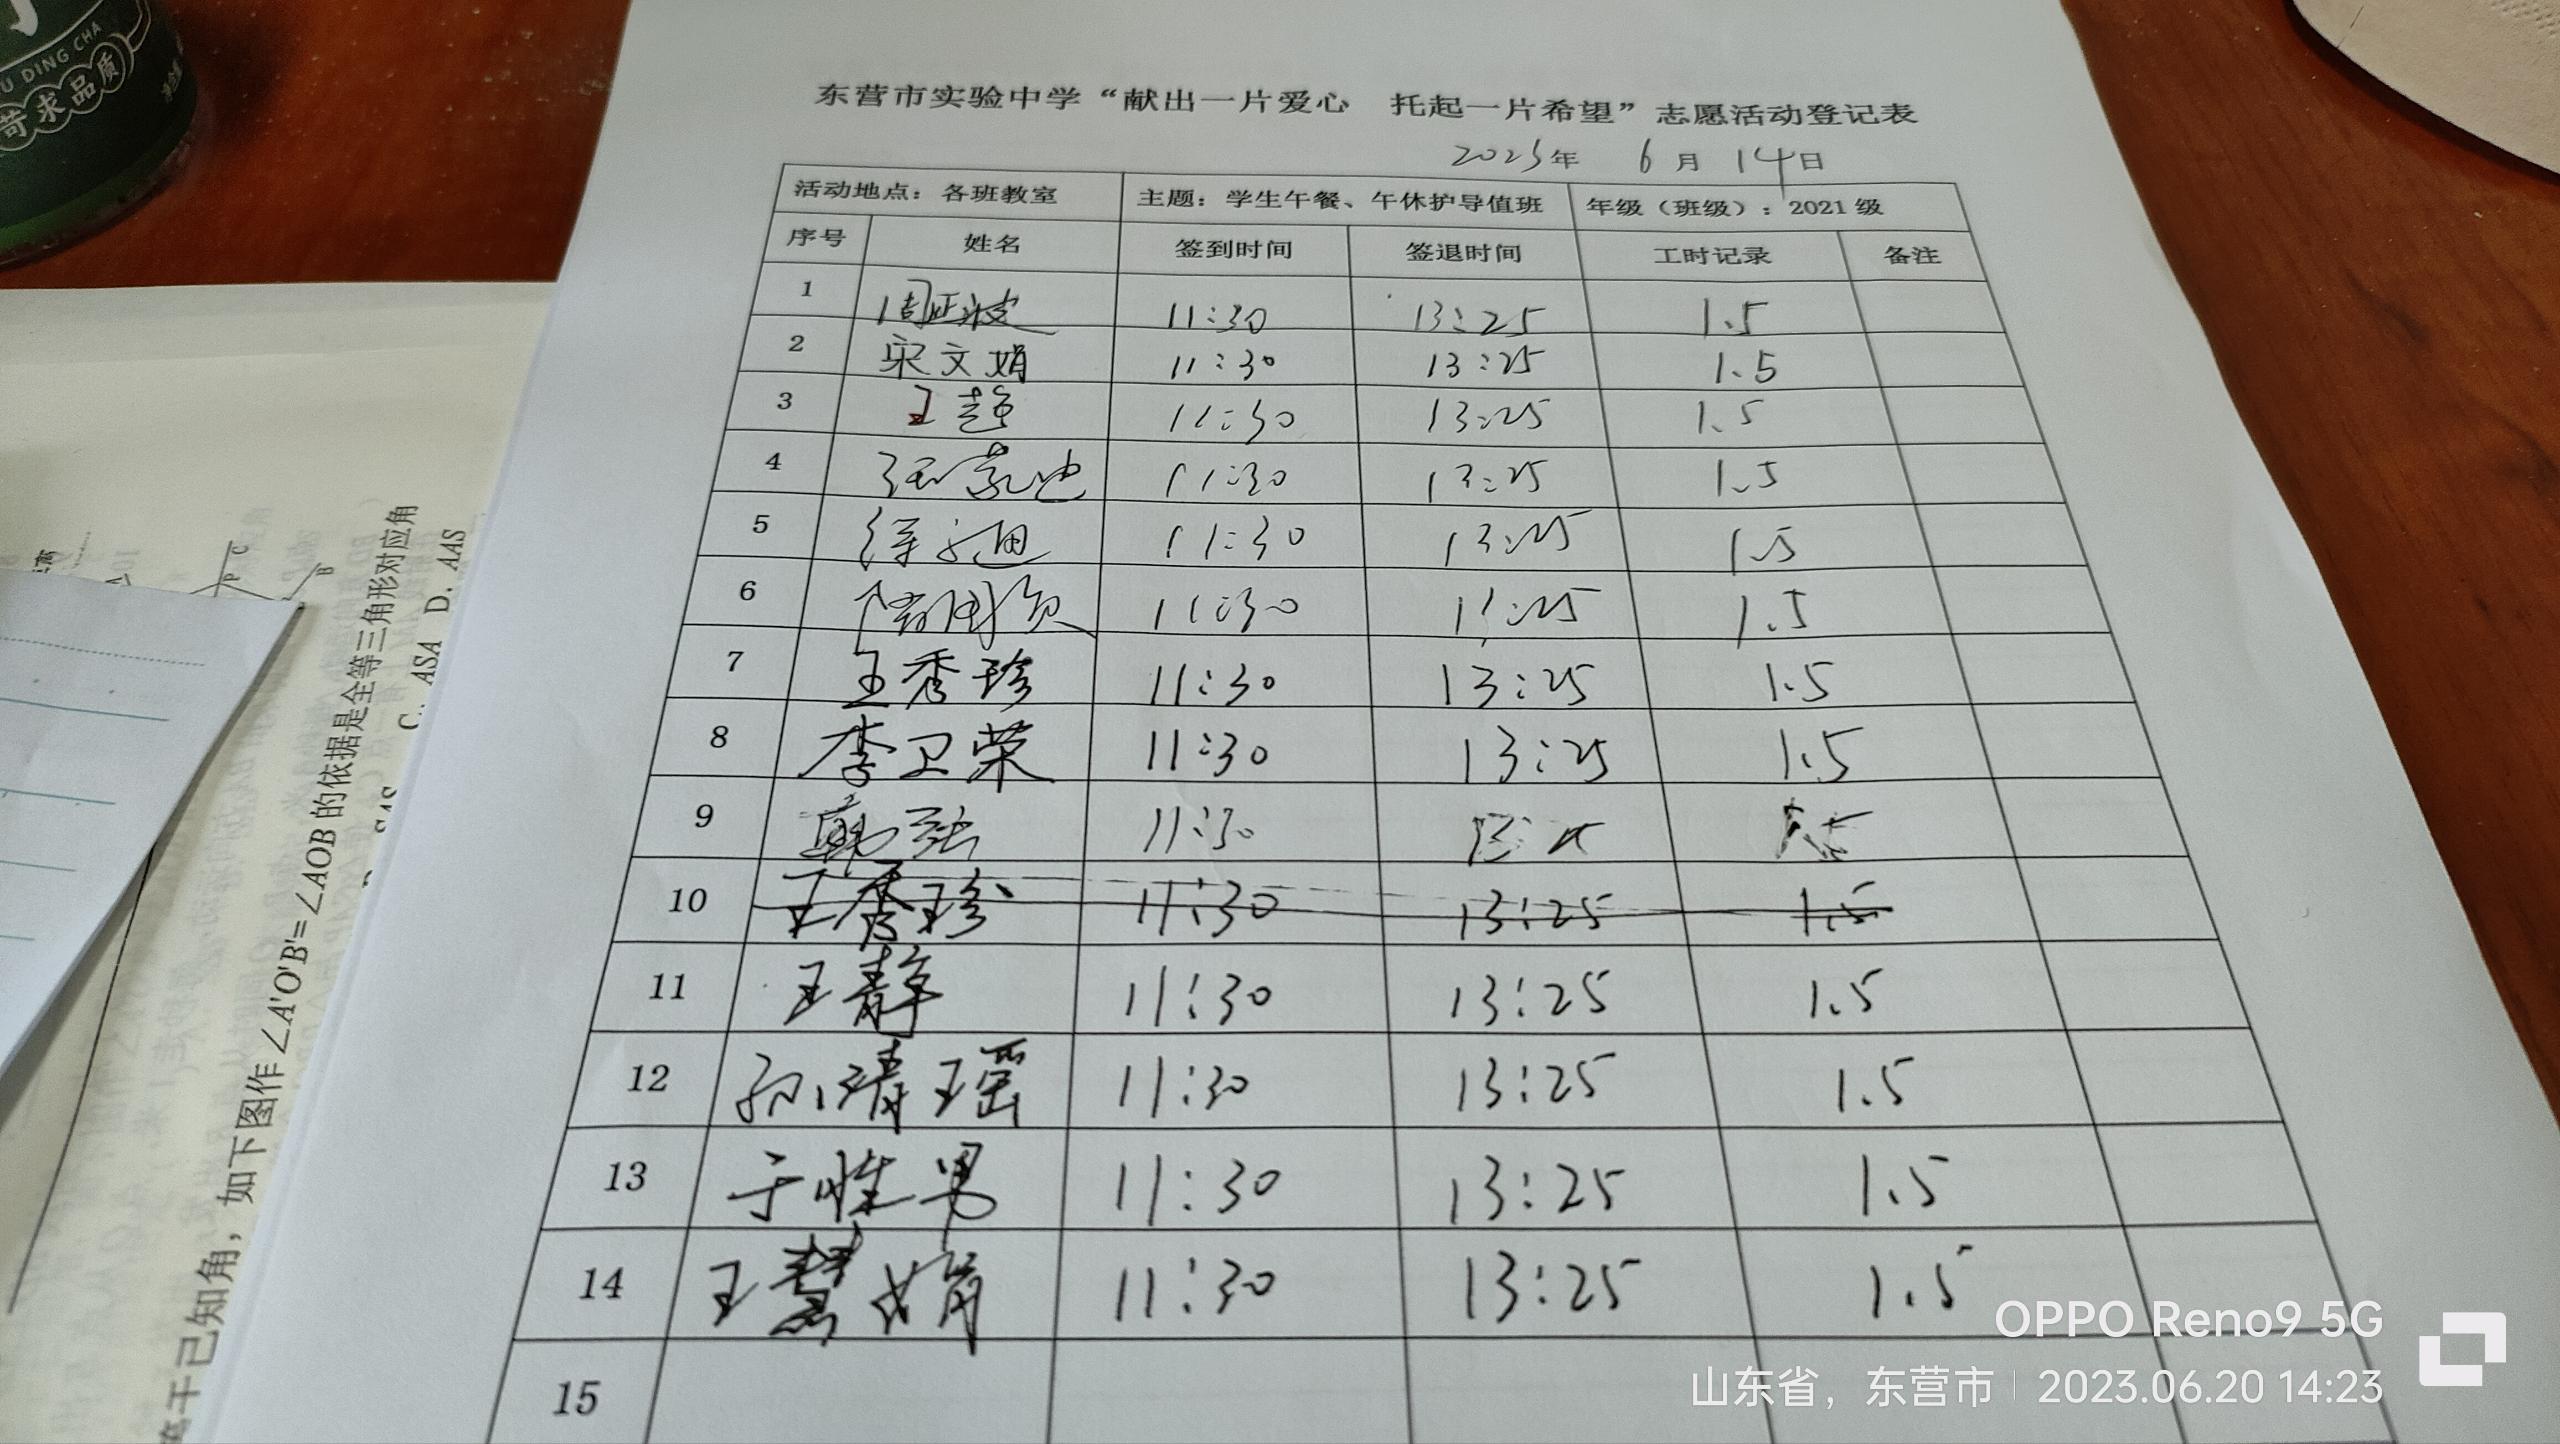 U DING CHA
苛求品质
东营市实验中学“献出一片爱心 托起一片希望”志愿活动登记表
2023年 6月 14日
活动地点：各班教室 主题：学生午餐、午休护导值班 年级（班级）：2021级
序号 姓名 签到时间 签退时间 工时记录 备注
1 周正波 11:30 13:25 1.5
2 宋文娟 11:30 13:25 1.5
3 王超 11:30 13:25 1.5
4 11:30 13:25 1.5
5 11:30 13:25 1.5
6 11:30 13:25 1.5
7 王秀珍 11:30 13:25 1.5
8 李卫荣 11:30 13:25 1.5
9 11:30 1.5
10 王秀珍 11:30 13:25 1.5
11 王静 11:30 13:25 1.5
12 孙靖瑶 11:30 13:25 1.5
13 于性男 11:30 13:25 1.5
14 王慧娟 11:30 13:25 1.5
15
C. ASA D. AAS
的依据是全等三角形对应角
等于已知角，如下图作∠A'O'B'=∠AOB
OPPO Reno9 5G
山东省，东营市 2023.06.20 14:23